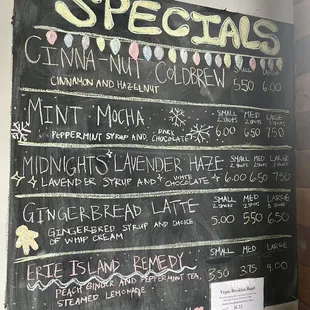 SPECIALS
CINNA-NUT COLDBREW
SMALL LARGE
5.50 6.00
CINNAMON AND HAZELNUT
MINT MOCHA
SMALL MED LARGE
2 SHOTS 2 SHOTS 3 SHOTS
6.00 6.50 7.50
PEPPERMINT SYRUP AND DARK CHOCOLATE
MIDNIGHTS LAVENDER HAZE
SMALL MED LARGE
2 SHOTS 2 SHOTS 3 SHOTS
6.00 6.50 7.50
LAVENDER SYRUP AND WHITE CHOCOLATE
GINGERBREAD LATTE
SMALL MED LARGE
5.00 5.50 6.50
GINGERBRED SYRUP AND CHOICE
OF WHIP CREAM
ERIE ISLAND REMEDY
SMALL MED LARGE
3.50 3.75 4.00
PEACH GINGER AND PEPPERMINT TEA,
STEAMED LEMONADE
Vegan Breakfast Bagel